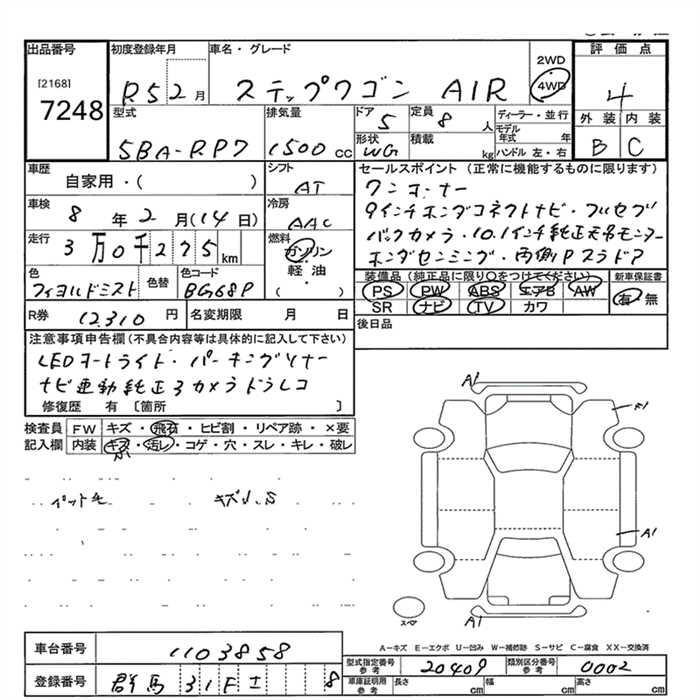 出品番号 初度登録年月 車名・グレード 評価点
[2168]
7248
R5 2月 ステップワゴン AIR 2WD 4WD 4
型式 排気量 ドア 5 定員 8 人 ディーラー・並行 外装 内装
5BA-RP7 1500 cc 形状 WG 積載 kg モデル年式 年 ハンドル 左・右 B C
車歴 自家用・( ) シフト AT
セールスポイント (正常に機能するものに限ります)
ワンオーナー
車検 8年 2月(14日) 冷房 AAC
9インチホンダコネクトナビ・フルセグ
走行 3万0千275km 燃料 ガソリン・軽油・( )
バックカメラ・10.1インチ純正天吊モニター
ホンダセンシング・両側Pスラドア
色 フィヨルドミスト 色替 色コード BG68P
装備品 (純正品に限り○をつけてください) 新車保証書
PS PW ABS エアB AW 有・無
SR ナビ TV カワ
R券 12310 円 名変期限 月 日
後日品
注意事項申告欄(不具合内容等は具体的に記入して下さい)
LEDオートライト・パーキングソナー
ナビ連動純正3カメラドラレコ
修復歴 有 〔箇所 〕
検査員 FW キズ・飛石・ヒビ割・リペア跡・×要
記入欄 内装 キズ・汚レ・コゲ・穴・スレ・キレ・破レ
小
ペット毛 キズ小、S
A1
F1
A1
A1
スペア
A-キズ E-エクボ U-凹み W-補修跡 S-サビ C-腐食 XX-交換済
車台番号 1103858
型式指定番号 参考 20409 類別区分番号 参考 0002
登録番号 群馬 31F ± 8
車庫証明用 参考 長さ cm 幅 cm 高さ cm